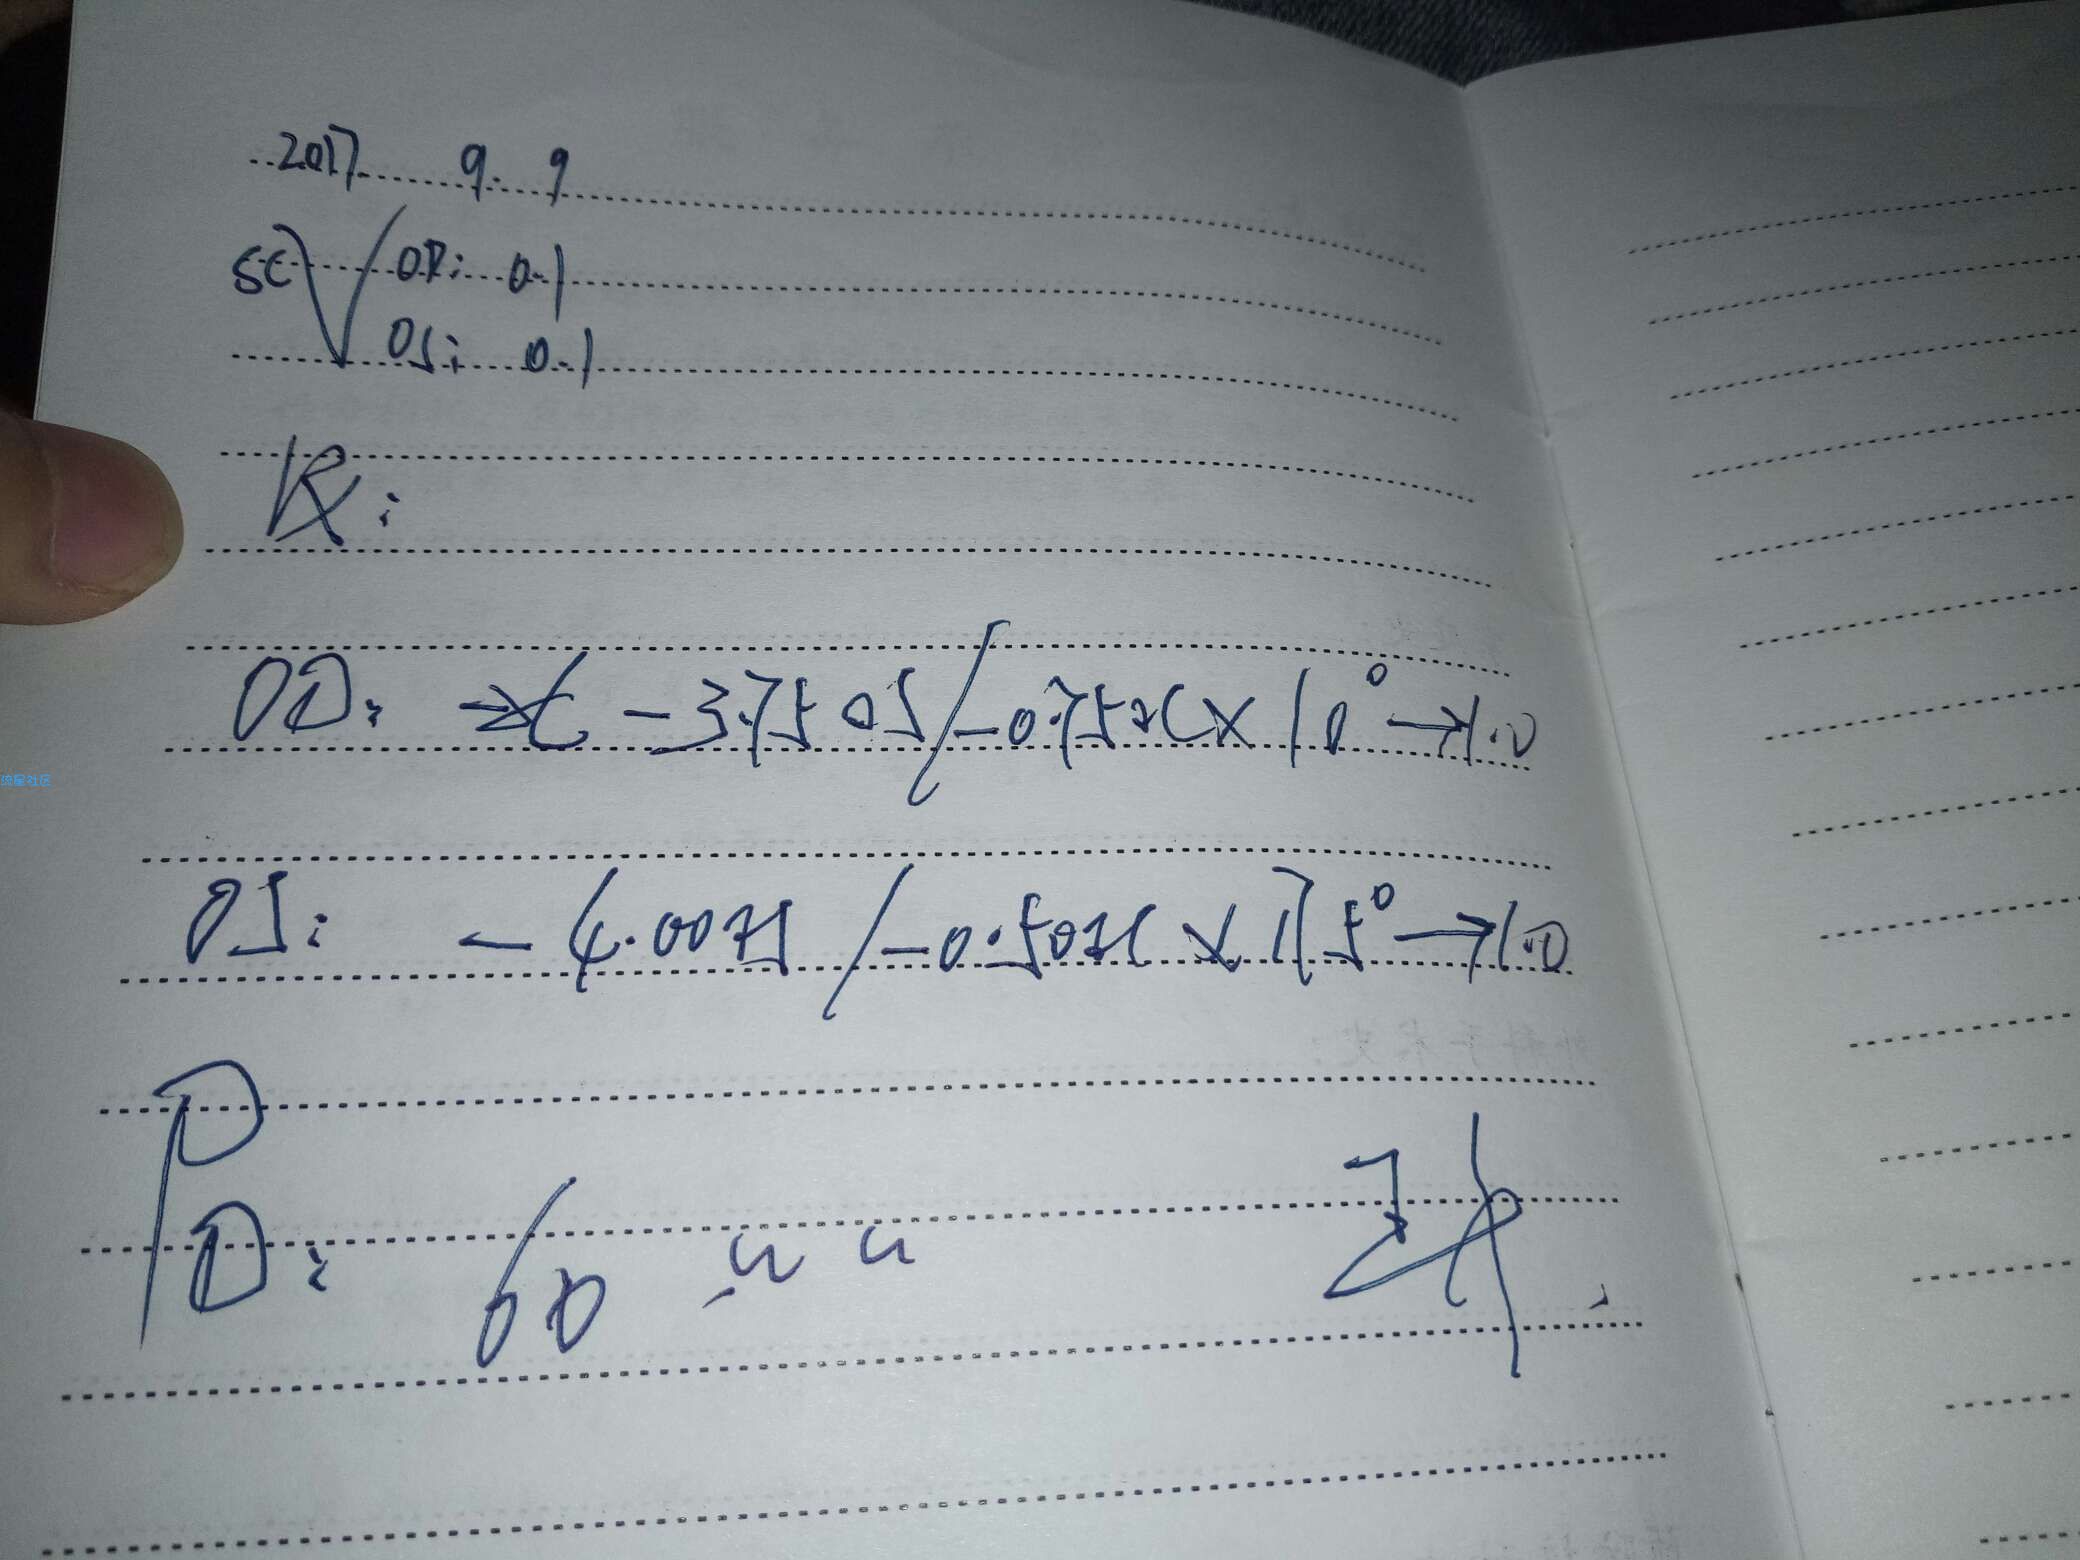 2017 9.9
SC V OD: 0.1
OS: 0.1
R:
OD: -3.75DS/-0.75DC×10°→1.0
OS: -4.00DS/-0.50DC×175°→1.0
PD: 60
流星社区